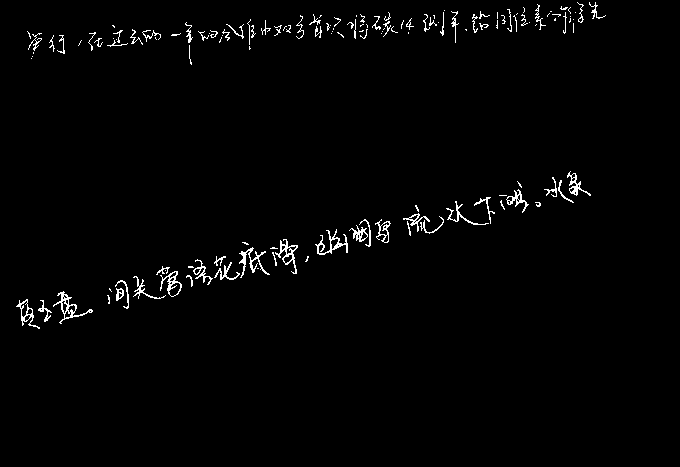 举行,在过去的一年的合作中双方首次将碳14测年、锶同位素分析等先
落玉盘。间关莺语花底滑,幽咽泉流冰下难。冰泉